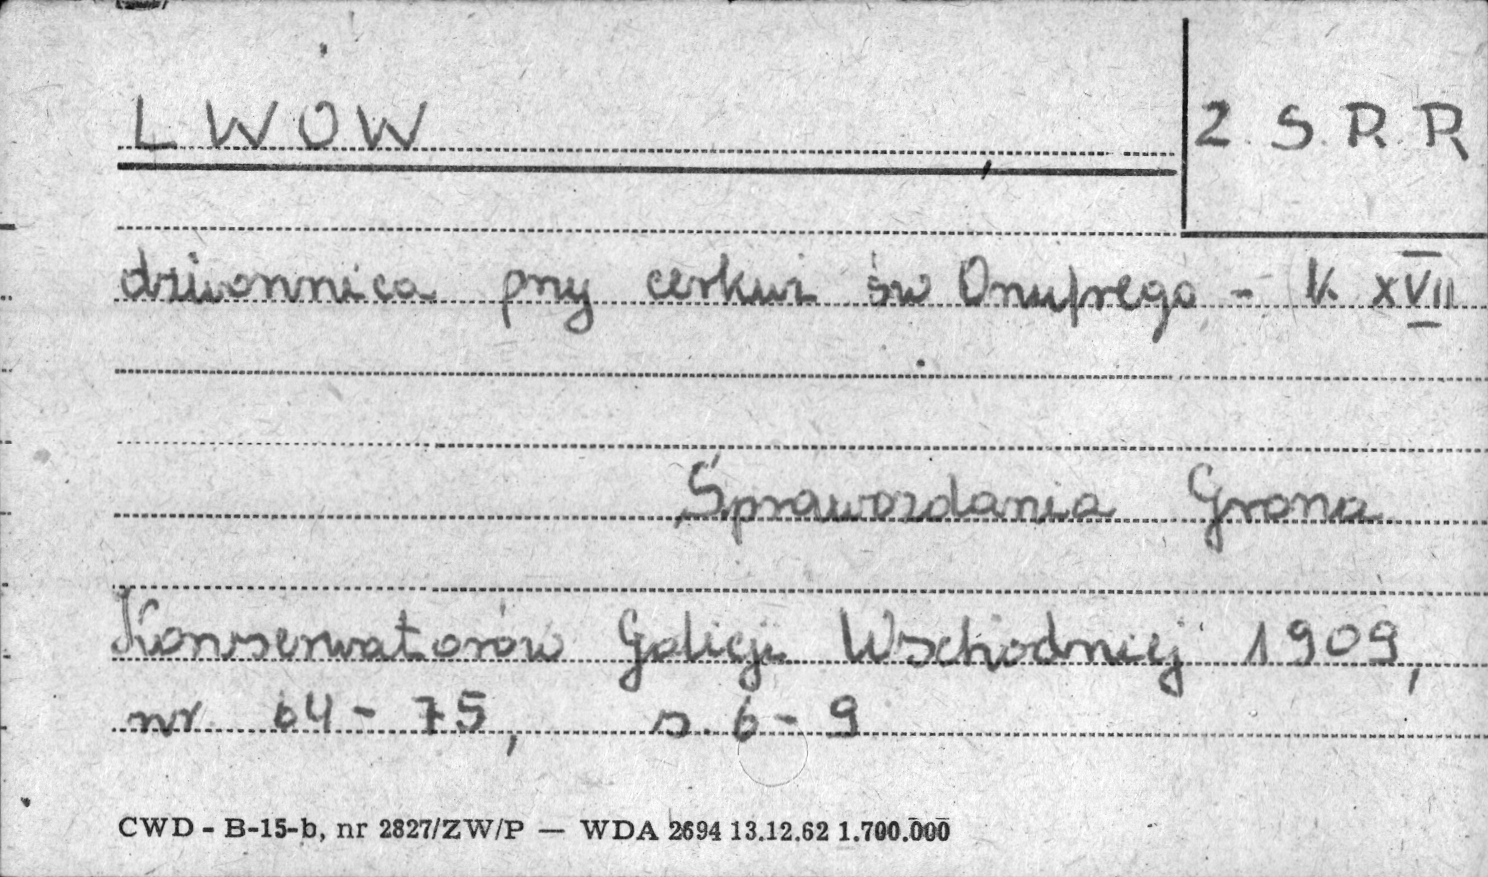 LWÓW
Z.S.R.R
dzwonnica przy cerkwi św Onufrego - K. XVII
Sprawozdania Grona
Konserwatorów Galicji Wschodniej 1909,
nr 64-75, s. 6-9
CWD - B-15-b, nr 2827/ZW/P — WDA 2694 13.12.62 1.700.000